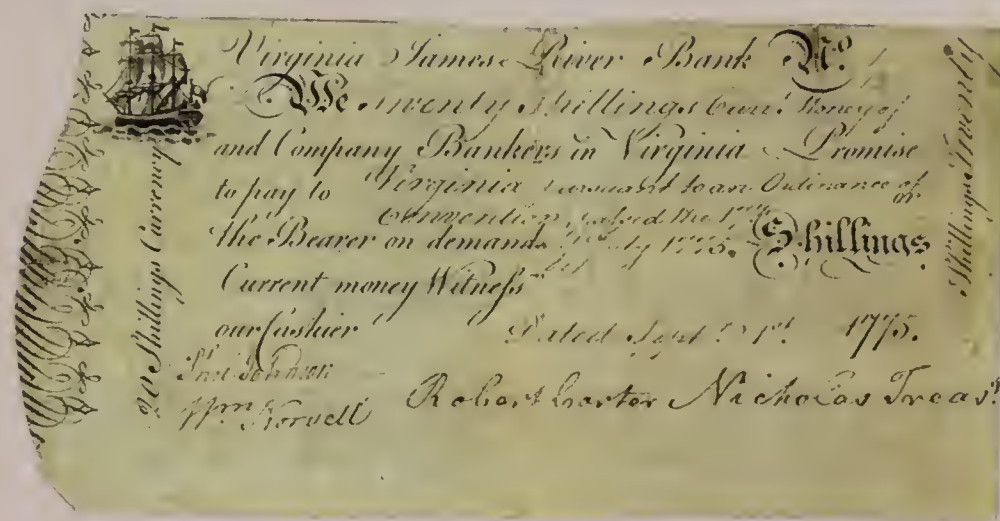 Virginia James River Bank No.
We Twenty Shillings Curr.t Money of
and Company Bankers in Virginia Promise
to pay to Virginia pursuant to an Ordinance of
or
Convention passed the
the Bearer on demand July 1775. Shillings
Current money Witness
our Cashier Dated Sept.r 1st. 1775.
Johnson
Wm. Norvell Robert Carter Nicholas Treasr.
20 Shillings Currency
Shillings Twenty